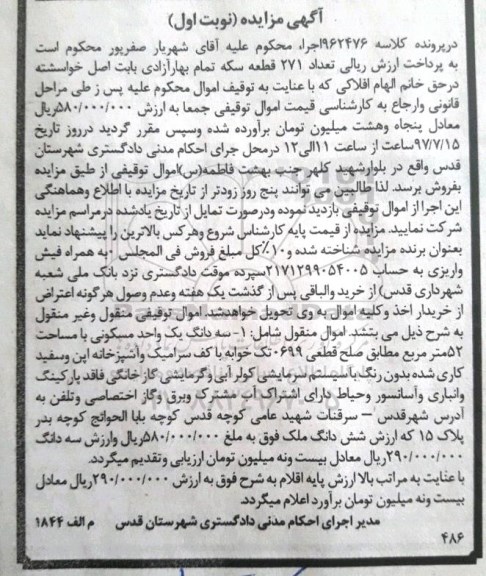 آگهی مزایده (نوبت اول)
درپرونده کلاسه ۹۶۲۴۷۶اجرا، محکوم علیه آقای شهریار صفرپور محکوم است
به پرداخت ارزش ریالی تعداد ۲۷۱ قطعه سکه تمام بهارآزادی بابت اصل خواسته
درحق خانم الهام افلاکی که با عنایت به توقیف اموال محکوم علیه پس ز طی مراحل
قانونی وارجاع به کارشناسی قیمت اموال توقیفی جمعا به ارزش ۵۸۰/۰۰۰/۰۰۰ریال
معادل پنجاه وهشت میلیون تومان برآورده شده وسپس مقرر گردید درروز تاریخ
۹۷/۷/۱۵ساعت از ساعت ۱۱الی۱۲ درمحل جرای احکام مدنی دادگستری شهرستان
قدس واقع در بلوارشهید کلهر جنب بهشت فاطمه(س)اموال توقیفی از طیق مزایده
بفروش برسد. لذا طالبین می توانند پنج روز زودتر از تاریخ مزایده با اطلاع وهماهنگی
این اجرا از اموال توقیفی بازدید نموده ودرصورت تمایل از تاریخ یادشده درمراسم مزایده
شرکت نمایید. مزایده از قیمت پایه کارشناس شروع وهرکس بالاترین را پیشنهاد نماید
بعنوان برنده مزایده شناخته شده و۱۰٪کل مبلغ فروش فی المجلس (به همراه فیش
واریزی به حساب ۲۱۷۱۲۹۹۰۵۴۰۰۵سپرده موقت دادگستری نزد بانک ملی شعبه
شهرداری قدس) از خرید والباقی پس از گذشت یک هفته وعدم وصول هرگونه اعتراض
از خریدار اخذ وکلیه اموال به وی تحویل خواهدشد. اموال توقیفی منقول وغیر منقول
به شرح ذیل می بتشد. اموال منقول شامل: ۱-سه دانگ یک واحد مسکونی با مساحت
۵۲متر مربع مطابق صلح قطعی ۰۶۹۹تک خوابه با کف سرامیک وآشپزخانه اپن وسفید
کاری شده بدون رنگ با سیستم سرمایشی کولر آبی وگرمایشی گاز خانگی فاقد پارکینگ
وانباری وآسانسور وحیاط دارای اشتراک آب مشترک وبرق وگاز اختصاصی وتلفن به
آدرس شهرقدس – سرقنات شهید عامی کوچه قدس کوچه بابا الحوائج کوچه بدر
پلاک ۱۵ که ارزش شش دانگ ملک فوق به ملغ ۵۸۰/۰۰۰/۰۰۰ریال وارزش سه دانگ
۲۹۰/۰۰۰/۰۰۰ریال معادل بیست ونه میلیون تومان ارزیابی وتقدیم میگردد.
با عنایت به مراتب بالا ارزش پایه اقلام به شرح فوق به ارزش ۲۹۰/۰۰۰/۰۰۰ریال معادل
بیست ونه میلیون تومان برآورد اعلام میگردد.
مدیر اجرای احکام مدنی دادگستری شهرستان قدس م الف ۱۸۴۴
۴۸۶